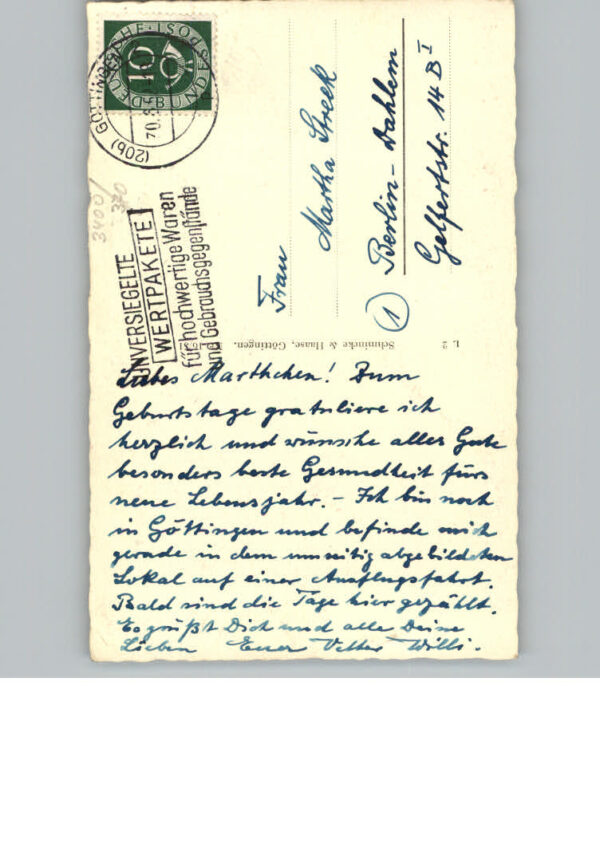 DEUTSCHE BUNDESPOST
10
(20b) GÖTTINGEN
3400/
370
UNVERSIEGELTE
WERTPAKETE
für hochwertige Waren
und Gebrauchsgegenstände
Frau
Martha Streek
① Berlin-Dahlem
Gelfertstr. 14 B I
Schmincke & Haase, Göttingen.
L 2
Liebes Marthchen! Zum
Geburtstage gratuliere ich
herzlich und wünsche alles Gute
besonders beste Gesundheit fürs
neue Lebensjahr. – Ich bin noch
in Göttingen und befinde mich
gerade in dem umseitig abgebildeten
Lokal auf einer Ausflugsfahrt.
Bald sind die Tage hier gezählt.
Es grüßt Dich und alle Deine
Lieben Euer Vetter Willi.